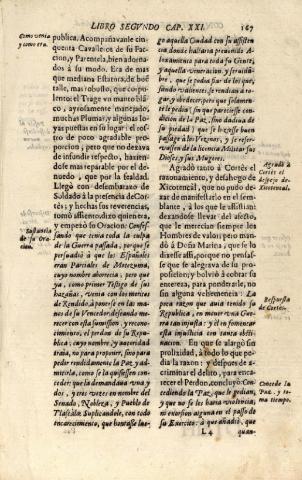 LIBRO SEGUNDO CAP. XXI. 167
Como venia
y como era.
publica. Acompañavanle cin-
quenta Cavalleros de su Fac-
cion, y Parentela, bien adorna-
dos à su modo. Era de mas
que mediana Estatura, de buẽ
talle, mas robusto, que corpu-
lento: el Trage vn manto blã-
co, ayrosamente manejado,
muchas Plumas, y algunas lo-
yas puestas en su lugar: el ros-
tro de poco agradable pro-
porcion, pero que no dexava
de infundir respecto, hazien-
dose mas reparable por el de-
nuedo, que por la fealdad.
Llegó con desembarazo de
Soldado à la presencia de Cor-
tès; y hechas sus reverencias,
tomò assiento, dixo quien era,
y empezò su Oracion: Confes-
Sustancia
de su Ora-
cion.
sando que tenia toda la culpa
de la Guerra passada, porque se
persuadiò à que los Españoles
eran Parciales de Motezuma,
cuyo nombre aborrecia; pero que
ya, como primer Testigo de sus
hazañas, venia con meritos
de Rendido, à ponerse en las ma-
nos de su Vencedor, deseando me-
recer con esta sumission, y recono-
cimiento, el perdon de su Repu-
blica; cuyo nombre, y autoridad
traia, no para proponer, sino para
pedir rendidamente la Paz, y ad-
mitirla, como se la quisiessen con-
ceder: que la demandava vna, y
dos, y tres vezes en nombre del
Senado, Nobleza, y Pueblo de
Tlascala: Suplicandole, con todo
encarecimiento, que honrasse lue-
go aquella Ciudad con su assisten-
cia, donde hallaria prevenido A-
lojamiento para toda su Gente,
y aquella veneracion, y servidũ-
bre, que se podia fiar de los que,
siendo valientes, se rendian à ro-
gar, y obedecer; pero que solamen-
te pedia: sin que pareciesse con-
dicion de la Paz, sino dadiva de
su piedad: que se hiziesse buen
passage à los Vezinos, y se reser-
vassen de la licencia Militar sus
Dioses, y sus Mugeres.
Agradò tanto à Cortès el
Agradò à
Cortès el
despejo de
Xicotencàl.
razonamiento, y desahogo de
Xicotencàl, que no pudo de-
xar de manifestarlo en el sem-
blante, à los que le assistian:
dexandose llevar del afecto,
que le merecian siempre los
Hombres de valor; pero man-
dò à Doña Marina, que se lo
dixesse assi, porque no pensas-
se que se alegrava de su pro-
posicion; y bolviò à cobrar su
entereza, para ponderarle, no
sin alguna vehemencia: La
Respuesta
de Cortès.
poca razon que avia tenido su
Republica, en mover vna Guer-
ra tan injusta; y el en fomentar
esta injusticia con tanta obsti-
nacion. En que se alargò sin
prolixidad, à todo lo que pe-
dia la razon: y despues de a-
criminar el delito, para enca-
recer el Perdon, concluyò: Con-
Concede la
Paz, y to-
ma tiempo.
cediendo la Paz, que le pedian,
y que no se les haria violencia,
ni extorsion alguna en el passo de
su Exercito: à que añadiò, que
L 4
quan-